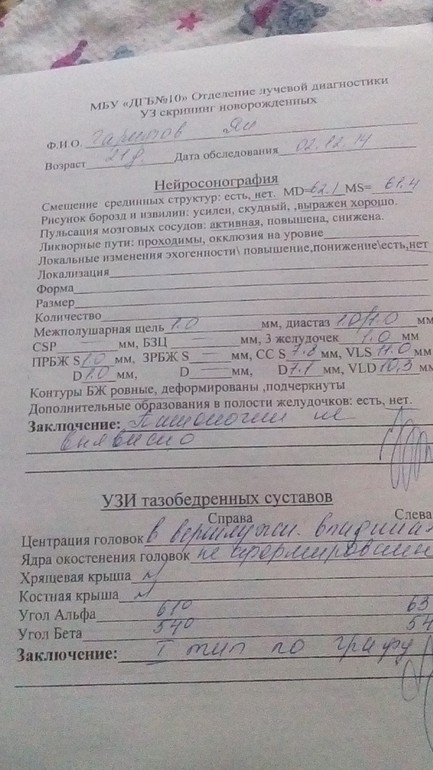 МБУ «ДГБ№10» Отделение лучевой диагностики
УЗ скрининг новорожденных
Ф.И.О.
Возраст 21д. Дата обследования 02.12.14
Нейросонография
Смещение срединных структур: есть, нет. MD=62.1 MS= 61.4
Рисунок борозд и извилин: усилен, скудный, ,выражен хорошо.
Пульсация мозговых сосудов: активная, повышена, снижена.
Ликворные пути: проходимы, окклюзия на уровне
Локальные изменения эхогенности\ повышение,понижение\есть,нет
Локализация
Форма
Размер
Количество
Межполушарная щель 1.0 мм, диастаз 1.0/1.0 мм
CSP мм, БЗЦ мм, 3 желудочек 1.0 мм
ПРБЖ S 1.0 мм, ЗРБЖ S мм, СС S 7.8 мм, VLS 11.0 мм
D 1.0 мм, D мм, D 7.1 мм, VLD 10,3 мм
Контуры БЖ ровные, деформированы ,подчеркнуты
Дополнительные образования в полости желудочков: есть, нет.
Заключение: Патологии не
выявлено
УЗИ тазобедренных суставов
Справа Слева
Центрация головок в вертлужн. впадинах
Ядра окостенения головок не сформированы
Хрящевая крыша N
Костная крыша N
Угол Альфа 61° 63
Угол Бета 54° 54
Заключение: I тип по графу